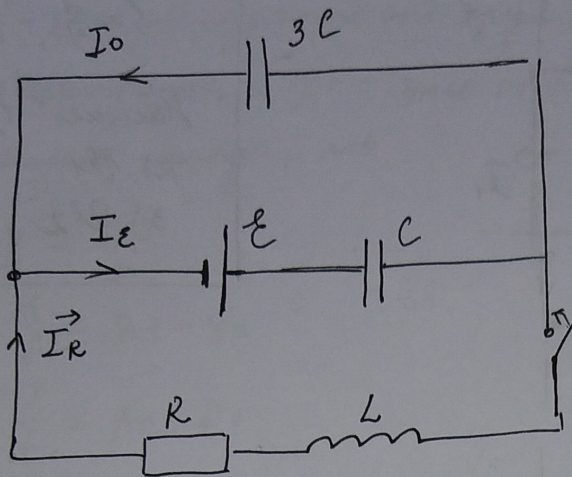 I₀ 3C
I_ℰ ℰ C
I_R
R L